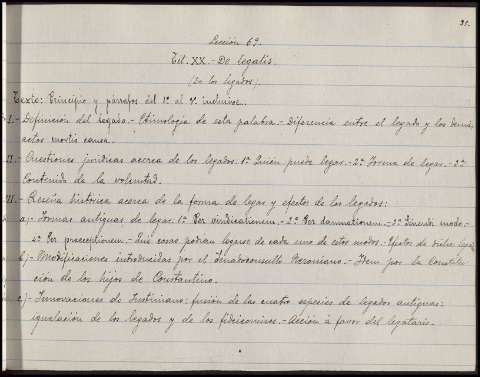 31.
Lección 69.
Tit. XX.- De legatis.
(De los legados).
Texto: Principio y párrafos del 1º al inclusive.
I.- Definición del legado.- Etimología de esta palabra.- Diferencia entre el legado y los demás
actos mortis causa.
II.- Cuestiones jurídicas acerca de los legados. 1ª Quién puede legar.- 2ª Forma de legar.- 3ª
Contenido de la voluntad.
III.- Reseña histórica acerca de la forma de legar y efectos de los legados:
a).- Formas antiguas de legar. 1º Per vindicationem.- 2º Per damnationem.- 3º Sinendi modo.-
4º Per praeceptionem.- Qué cosas podían legarse de cada uno de estos modos.- Efectos de
b).- Modificaciones introducidas por el Senadoconsulto Neroniano.- Idem por la Constitu-
ción de los hijos de Constantino.
c).- Innovaciones de Justiniano: fusión de las cuatro especies de legados antiguas:
igualación de los legados y de los fideicomisos.- Acción á favor del legatario.